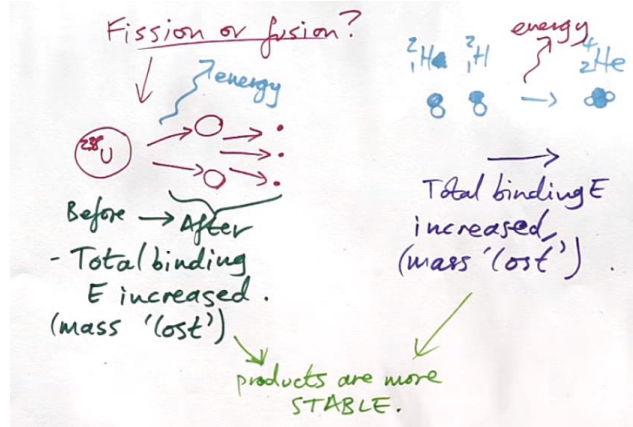 Fission or fusion?
energy
²³⁸U
Before → After
- Total binding
E increased.
(mass 'lost')
energy
²₁H ²₁H ⁴₂He
Total binding E
increased,
(mass 'lost').
products are more
STABLE.